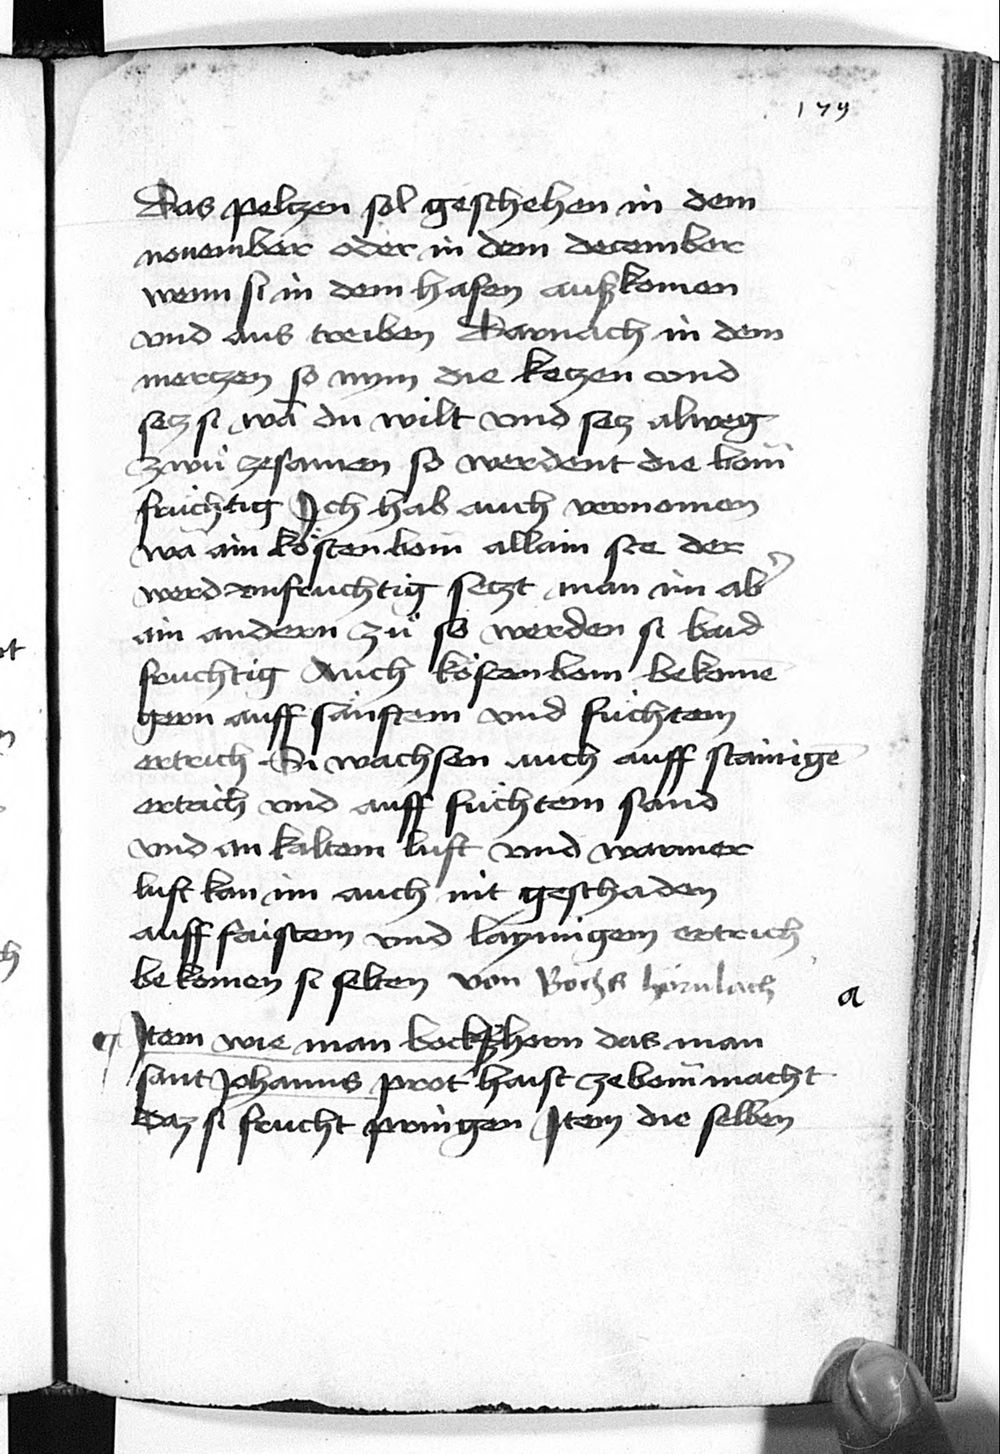 179
Das peltzen sol geschehen in dem
nouember oder in dem december
wenn si in dem hafen außkomen
vnd aus treiben Darnach in dem
mertzen so nym die ketzen vnd
setz si wa du wilt vnd setz alweg
zwů zesamen so werdent die bom̄
fruchtig Ich hab auch vernomen
wa ain kösten bom allain ste der
werd vnfruchtig setzt man im ab
ain andern zů so werden si baid
fruchtig Auch kösten bom bekome
gern auff sänftem vnd füchtem
ertrich Si wachsen auch auff stainigē
ertrich vnd auff füchtem sand
vnd an kaltem luft vnd warmer
luft kan im auch nit geschaden
auff faistem vnd laymigem ertrich
bekomen si selten von Bocks hörnlach
a
Item wie man bockßhorn das man
sant Johanns prot haist ze bom̄ macht
Daz si frucht pringen Item die selben